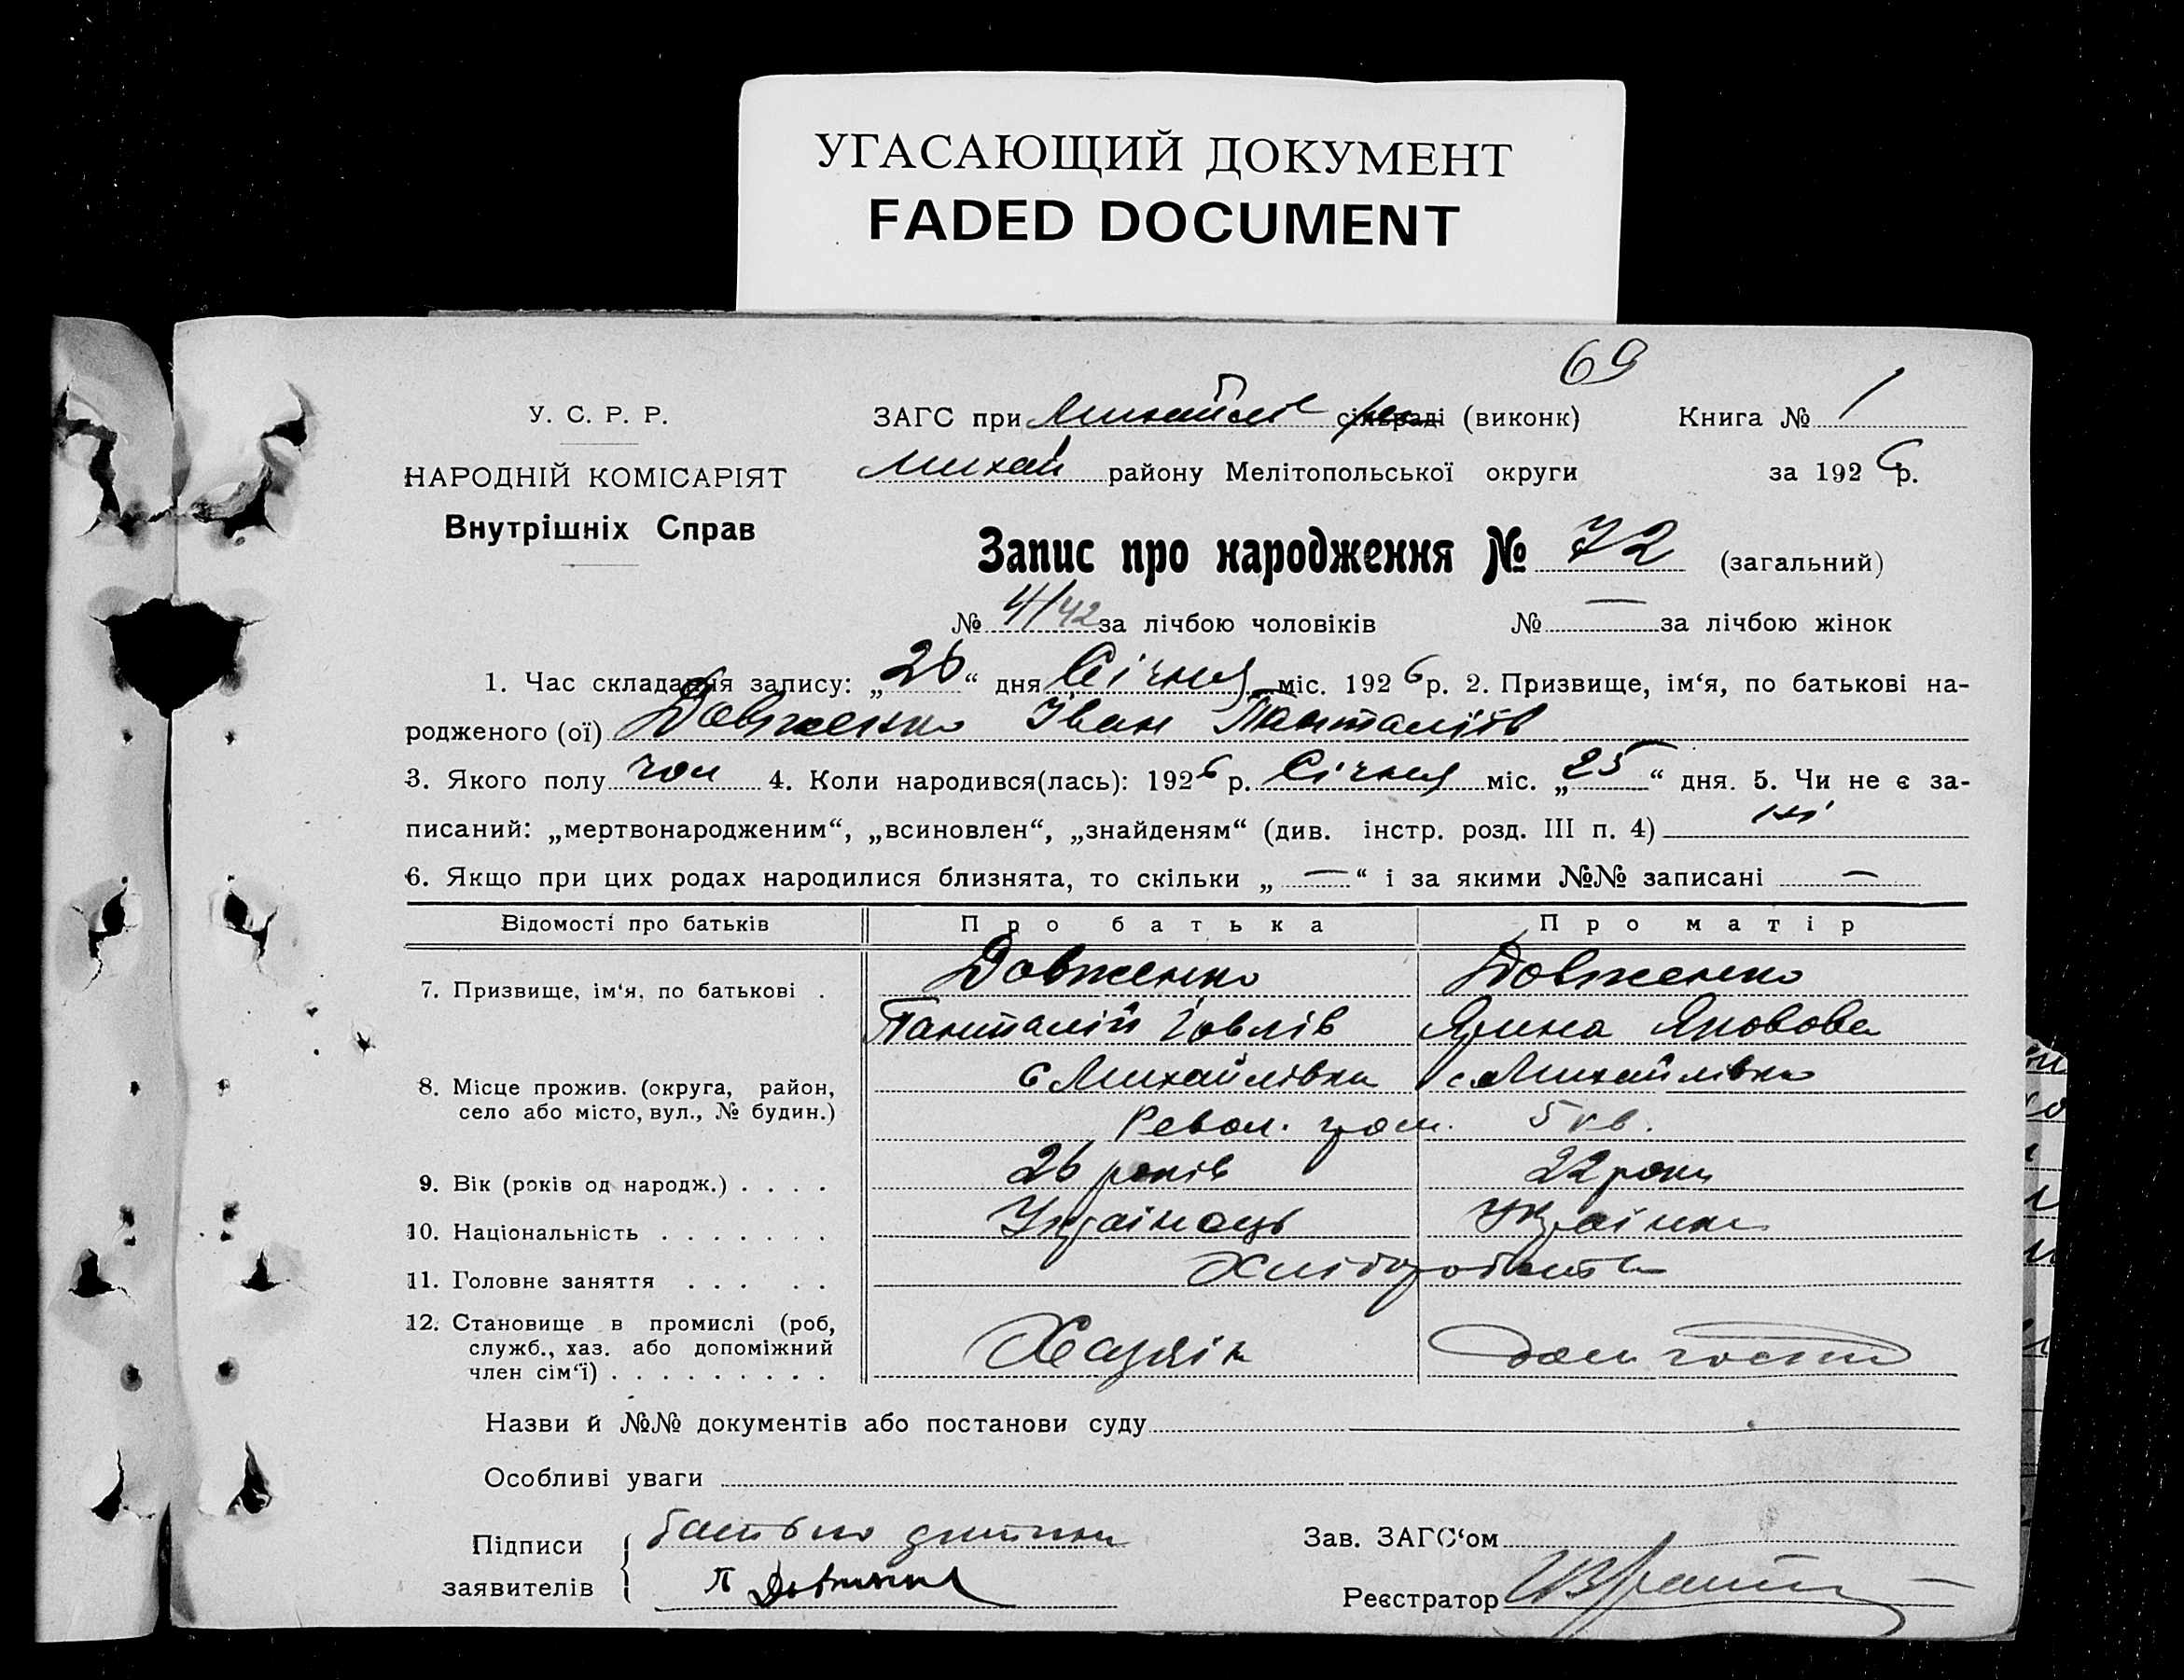 УГАСАЮЩИЙ ДОКУМЕНТ
FADED DOCUMENT
69
У. С. Р. Р.
ЗАГС при Михайлів сільраді (виконк) Книга № 1
НАРОДНІЙ КОМІСАРІЯТ
Михай району Мелітопольської округи за 1926 р.
Внутрішніх Справ
Запис про народження № 72 (загальний)
№ 41/42 за лічбою чоловіків № — за лічбою жінок
1. Час складання запису: „26“ дня Січня міс. 1926 р. 2. Призвище, ім‘я, по батькові на-
родженого (ої) Довженко Іван Панталіїв
3. Якого полу чол 4. Коли народився(лась): 1926 р. Січня міс. „25“ дня. 5. Чи не є за-
писаний: „мертвонародженим“, „всиновлен“, „знайденям“ (див. інстр. розд. III п. 4) ні
6. Якщо при цих родах народилися близнята, то скільки „—“ і за якими №№ записані —
Відомості про батьків Про батька Про матір
7. Призвище, ім‘я, по батькові . Довженко Довженко
Панталій Іовлів Ярина Яковова
8. Місце прожив. (округа, район, с Михайлівка с Михайлівка
село або місто, вул., № будин.) Револ. гром. 5 кв.
9. Вік (років од народж.) . . . . 26 років 22 роки
10. Національність . . . . . . . Українець Українка
11. Головне заняття . . . . . Хліборобство
12. Становище в промислі (роб,
служб., хаз. або допоміжний Хазяїн
член сім‘ї) . . . . . . . . .
Назви й №№ документів або постанови суду
Особливі уваги
Підписи батько дитини Зав. ЗАГС‘ом
заявителів П Довженко Реєстратор